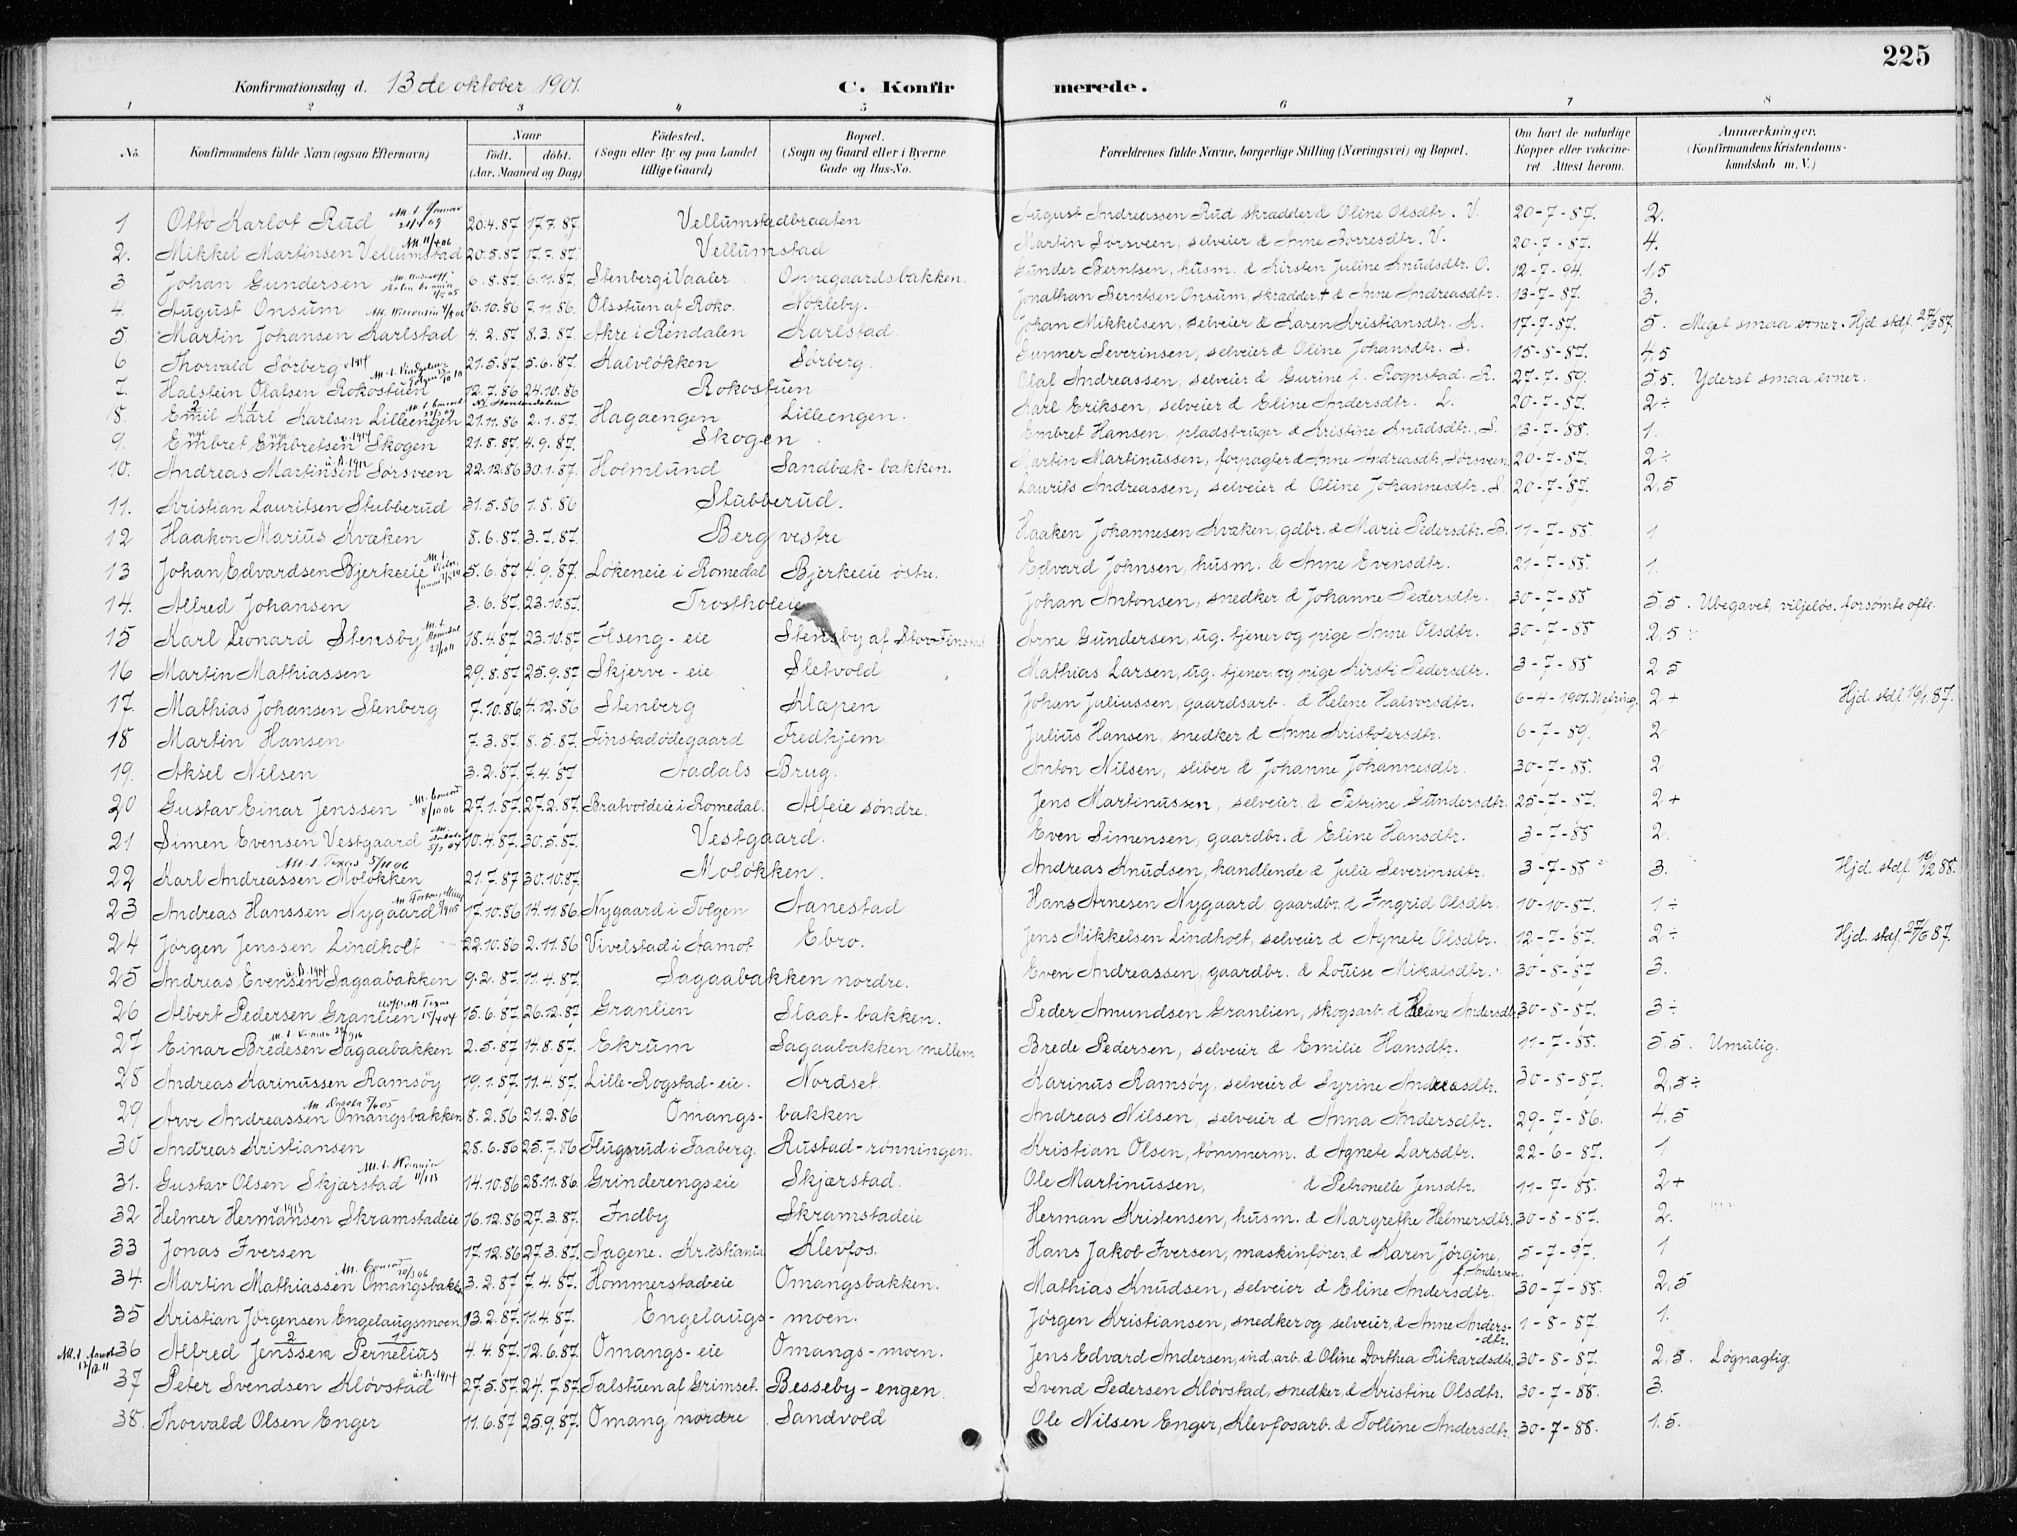 225
Konfirmationsdag d. 13de oktober 1901.
C. Konfirmerede.
1 2 3 4 5 6 7 8
No. Konfirmandens fulde Navn (ogsaa Efternavn) Naar født. døbt. (Aar, Maaned og Dag) Fødested. (Sogn eller By og paa Landet tillige Gaard) Bopæl. (Sogn og Gaard eller i Byerne Gade og Hus-No. Forældrenes fulde Navne, borgerlige Stilling (Næringsvei) og Bopæl. Om havt de naturlige Kopper eller vaccineret. Attest herom. Anmærkninger. (Konfirmandens Kristendomskundskab m. V.)
1 Otto Karlot Rud 20.4.87 17.7.87. Vellumstadbraaten August Andreassen Rud skrædder & Oline Olsdtr. V. 20-7-87. 2.
2. Mikkel Martinsen Vellumstad 20.5.87 17.7.87. Vellumstad Martin Sørsveen, selveier & Anne Borresdtr. V. 20-7-87. 4.
3 Johan Gundersen 6.8.87. 6.11.87. Stenberg i Vaaler Onnegaardsbakken. Gunder Berntsen, husm. & Kirsten Juline Knudsdtr. O. 12-7-94. 1,5
4. August Onsum M. Wisconsin 16.10.86 7.11.86. Olsstuen af Roko. Nokleby. Jonathan Berntsen Onsum, skrædder + & Anne Andreasdtr. 13-7-87. 3.
5 Martin Johansen Karlstad 4.2.87 8.3.87. Akre i Rendalen Karlstad Johan Mikkelsen, selveier & Karen Kristiansdtr. K. 17-7-87. 5. Meget smaa evner. Hjd. stdf. 27/3 87.
6 Thorvald Sørberg 21.5.87. 5.6.87. Kalvløkken Sørberg. Gunner Severinsen, selveier & Oline Johansdtr. S. 15-8-87. 4,5
7. Halstein Olafsen Rokostuen 12.7.86 24.10.86 Rokostuen Olaf Andreassen, selveier & Gurine f. Rognstad. R. 27-7-89. 5,5. Yderst smaa evner.
8. Emil Karl Karlsen Lilleengen 21.11.86 2.1.87. Hagaengen Lilleengen. Karl Eriksen, selveier & Eline Andersdtr. L. 20-7-87. 2÷
9. Embret Embretsen Skogen 21.8.87. 4.9.87. Skogen. Embret Hansen, pladsbruger & Kristine Knudsdtr. S. 13-7-88. 1.
10. Andreas Martinsen Sørsveen 22.12.86 30.1.87. Holmlund Sandbæk-bakken. Martin Martinussen, forpagter & Anne Andreasdtr. Sørsveen 20-7-87. 2÷
11. Kristian Lauritsen Stubberud 31.5.86 1.8.86 Stubberud. Laurits Andreassen, selveier & Oline Johannesdtr. S 20-7-87. 2,5
12 Haakon Marius Kvæken 8.6.87. 3.7.87. Berg vestre Haaken Johannesen Kvæken, gdbr. & Marie Pedersdtr. B. 11-7-88. 1
13 Johan Edvardsen Bjerkeeie 5.6.87 4.9.87. Løkeneie i Romedal Bjerkeeie østre. Edvard Johnsen, husm. & Anne Evensdtr. 21-7-88. 1.
14. Alfred Johansen 3.6.87. 23.10.87. Trostholeie Johan Antonsen, snedker & Johanne Pedersdtr. 30-7-88 5,5. Ubegavet, viljeløs, forsømte ofte.
15 Karl Leonard Stensby 18.4.87 23.10.87 Ilseng-eie Stensby af Store Finstad Arne Gundersen, ug. tjener og pige Anne Olsdtr. 30-7-88 2,5
16 Martin Mathiassen 29.8.87 25.9.87 Skjerve-eie Sletvold Mathias Larsen, ug. tjener og pige Kirsti Pedersdtr. 3-7-88 2.5
17. Mathias Johansen Stenberg 7.10.86 4.12.86 Stenberg Klapen Johan Juliussen, gaardsarb. & Helene Halvorsdtr. 6-4-1901. 2+ Hjd. stdf. 16/1 87.
18 Martin Hansen 7.3.87. 8.5.87. Finstadødegaard Fredhjem Julius Hansen, snedker & Anne Kristofersdtr. 6-7-89. 2
19. Aksel Nilsen 3.2.87. 7.4.87 Aadals Brug. Anton Nilsen, sliber & Johanne Johannesdtr. 30-7-88. 2
20 Gustav Einar Jenssen 8/10 06 27.1.87. 27.2.87. Bratvoldeie i Romedal. Alfeie søndre. Jens Martinussen, selveier, & Petrine Gundersdtr. 25-7-87. 2+
21 Simen Evensen Vestgaard 10.4.87. 30.5.87. Vestgaard. Even Simensen, gaardbr. & Eline Hansdtr. 3-7-88 2.
M. t. Texas 5/11 06
22 Karl Andreassen Moløkken 21.7.87 30.10.87. Moløkken. Andreas Knudsen, handlende & Julie Severinsdtr. 3-7-88 3. Hjd. stdf. 10/2 88.
23 Andreas Hanssen Nygaard 17.10.86 14.11.86. Nygaard i Tolgen Aanestad Hans Arnesen Nygaard, gaardbr. & Ingrid Olsdtr. 10-10-87. 1÷
24 Jørgen Jenssen Lindholt 22.10.86 2.11.86 Vivelstad i Aamot Ebro. Jens Mikkelsen Lindholt, selveier & Agnete Olsdtr. 12-7-87. 2÷ Hjd. stdf. 27/6 87.
25 Andreas Evensen Sagaabakken 9.2.87. 11.4.87. Sagaabakken nordre. Even Andreassen, gaardbr. & Louise Mikalsdtr. 30-8-87 3.
26 Albert Pedersen Granlien 15/4 04 15.6.87 26.12.87 Granlien Slaat-bakken. Peder Amundsen Granlien, skogsarb. & Helene Andersdtr. 30-8-87. 3÷
27 Einar Bredesen Sagaabakken 2.5.87 14.8.87. Ekrum Sagaabakken mellem Brede Pedersen, selveier & Emilie Hansdtr. 11-7-88. 5,5. Umulig.
28 Andreas Karinussen Ramsøy 19.1.87. 11.4.87. Lille-Rogstad-eie. Nordset Karinus Ramsøy, selveier & Syrine Andreasdtr. 30-8-87. 2,5÷
29 Arve Andreassen Omangsbakken 8.2.86 21.2.86 Omangs-bakken Andreas Nilsen, selveier & Anna Andersdtr. 29-7-86. 4,5
30 Andreas Kristiansen 28.6.86 25.7.86 Flugsrud i Faaberg. Rustad-rønningen. Kristian Olsen, tømmerm. & Agnete Larsdtr. 22-6-87. 1
31. Gustav Olsen Skjærstad 14.10.86 28.11.86. Grinderengseie Skjærstad. Ole Martinussen, & Petronelle Jensdtr. 11-7-88. 2+
32 Helmer Hermansen Skramstadeie 16.12.86 27.3.87. Indby Skramstadeie Herman Kristensen, husm. & Margrethe Helmersdtr. 30-8-87. 2.
33 Jonas Iversen 17.12.86 27.3.87. Sagene. Kristiania Klevfos. Hans Jakob Iversen, maskinfører, & Karen Jørgine, f. Andersen. 5-7-97. 1
34. Martin Mathiassen Omangsbakken 3.2.87 7.4.87 Hommerstadeie Omangsbakken. Mathias Knudsen, selveier & Eline Andersdtr. 30-7-88. 2,5
35 Kristian Jørgensen Engelaugsmoen 13.2.87. 11.4.87. Engelaugs-moen. Jørgen Kristiansen, snedker og selveier, & Anne Anders-dtr. 1-8-87 1.
36 Alfred Jenssen Pernelius 4.4.87 12.6.87. Omangs-eie Omangs-moen. Jens Edvard Andersen, ind. arb. & Oline Dorthea Rikardsdtr. 30-8-87. 2,5. Løgnagtig.
37 Peter Svendsen Kløvstad 27.5.87. 24.7.87. Talstuen af Grimset. Besseby-engen. Svend Pedersen Kløvstad, snedker, & Kristine Olsdtr. 30-7-88. 3.
38. Thorvald Olsen Enger 11.6.87 25.9.87. Omang nordre Sandvold Ole Nilsen Enger, Klevfosarb. & Tolline Andersdtr. 30-7-88. 1.5.